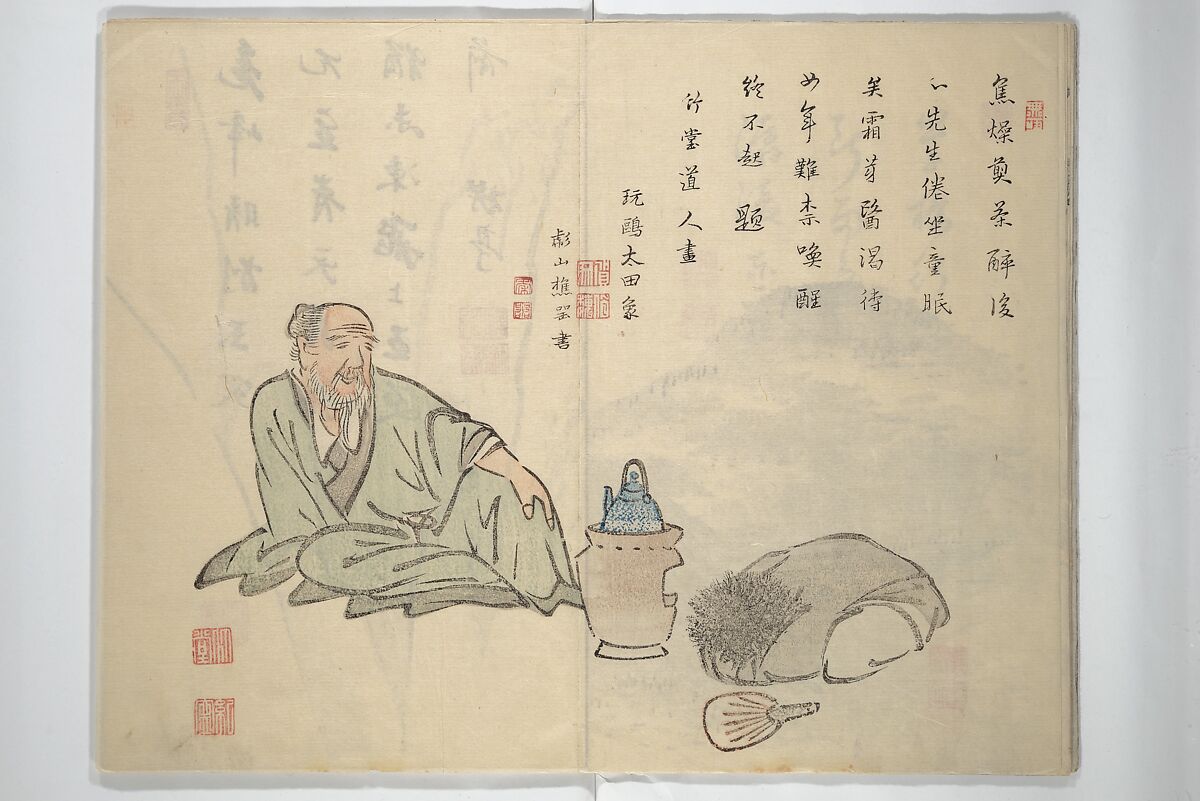 焦燥煎茶醉後
心先生倦坐童眠
矣霜芽醫渴待
如年難禁喚醒
終不起 題
竹堂道人畫
玩鷗太田象
山樵 書
竹堂